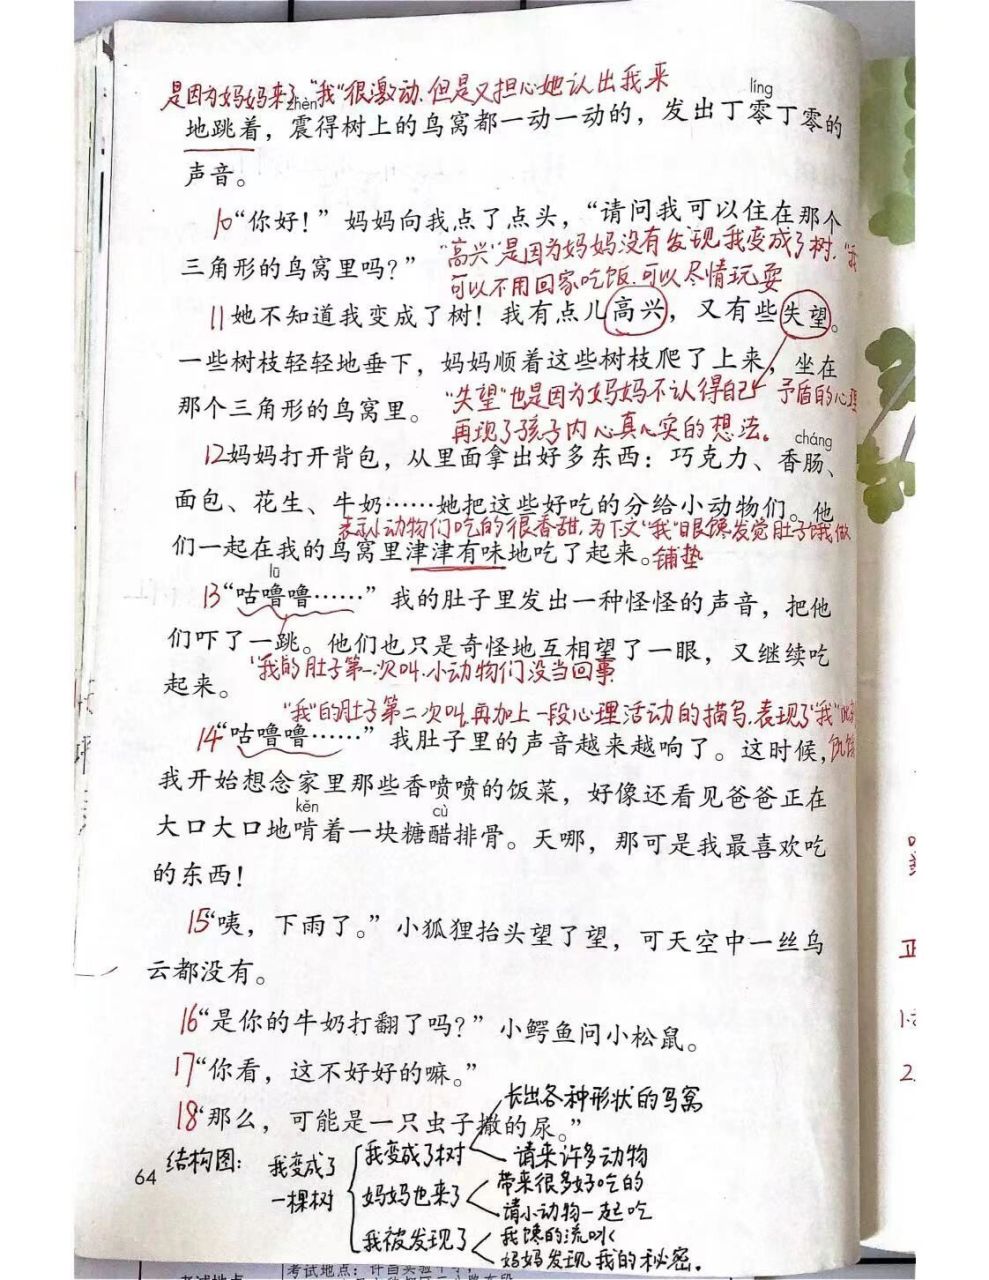 是因为妈妈来了，“我”很激动，但是又担心她认出我来
zhèn
líng
地跳着，震得树上的鸟窝都一动一动的，发出丁零丁零的
声音。
10“你好！”妈妈向我点了点头，“请问我可以住在那个
“高兴”是因为妈妈没有发现我变成了树，“我
三角形的鸟窝里吗？”
可以不用回家吃饭，可以尽情玩耍
11她不知道我变成了树！我有点儿高兴，又有些失望。
一些树枝轻轻地垂下，妈妈顺着这些树枝爬了上来，坐在
“失望”也是因为妈妈不认得自己 矛盾的心理
那个三角形的鸟窝里。
再现了孩子内心真实的想法。
cháng
12妈妈打开背包，从里面拿出好多东西：巧克力、香肠、
面包、花生、牛奶……她把这些好吃的分给小动物们。他
表示小动物们吃的很香甜，为下文“我”眼馋发觉肚子饿做
们一起在我的鸟窝里津津有味地吃了起来。
铺垫
lū
13“咕噜噜……”我的肚子里发出一种怪怪的声音，把他
们吓了一跳。他们也只是奇怪地互相望了一眼，又继续吃
“我”的肚子第一次叫，小动物们没当回事
起来。
“我”的肚子第二次叫，再加上一段心理活动的描写，表现了“我”
14“咕噜噜……”我肚子里的声音越来越响了。这时候，
我开始想念家里那些香喷喷的饭菜，好像还看见爸爸正在
kěn
cù
大口大口地啃着一块糖醋排骨。天哪，那可是我最喜欢吃
的东西！
15“咦，下雨了。”小狐狸抬头望了望，可天空中一丝乌
云都没有。
16“是你的牛奶打翻了吗？”小鳄鱼问小松鼠。
17“你看，这不好好的嘛。”
18“那么，可能是一只虫子撒的尿。”
结构图：
我变成了
一棵树
我变成了树
长出各种形状的鸟窝
请来许多动物
妈妈也来了
带来很多好吃的
请小动物一起吃
我被发现了
我馋的流口水
妈妈发现我的秘密.
64
正
2
考试地点
考试地点：